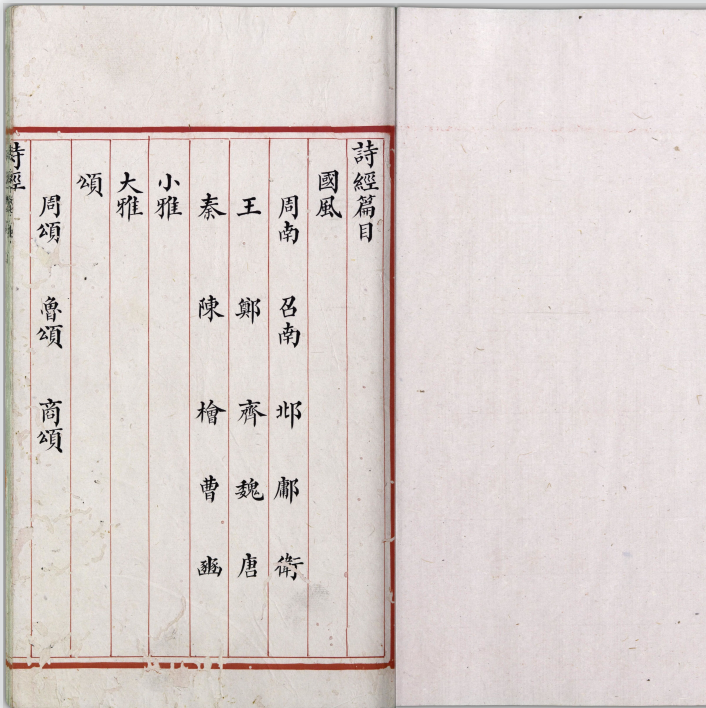 詩經篇目
國風
周南 召南 邶 鄘 衛
王 鄭 齊 魏 唐
秦 陳 檜 曹 豳
小雅
大雅
頌
周頌 魯頌 商頌
詩經